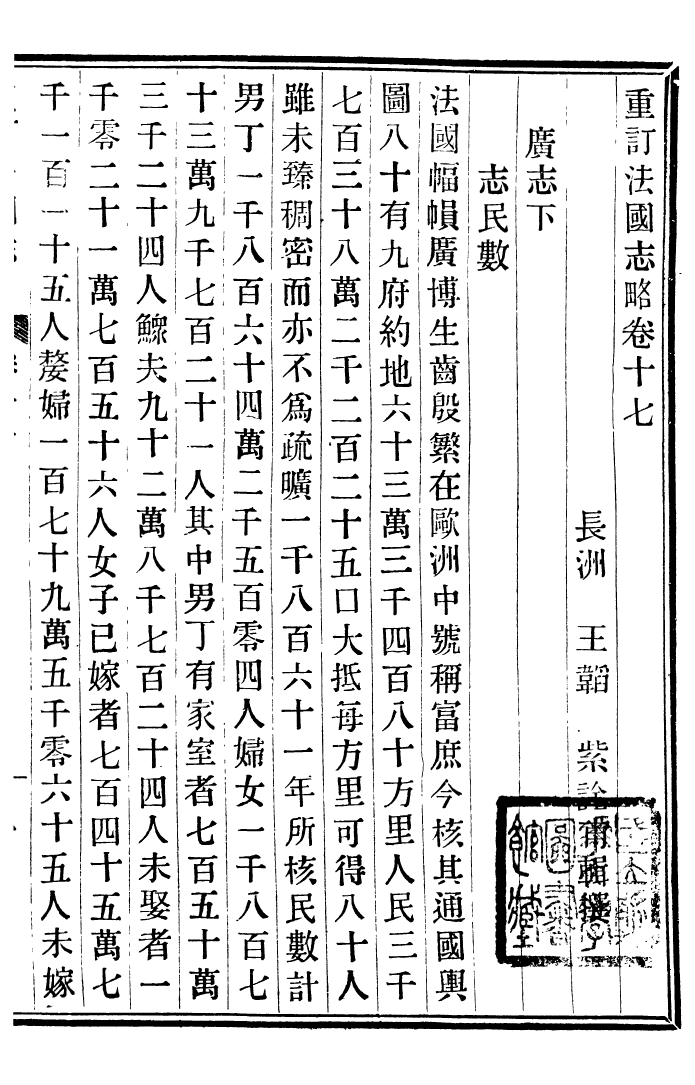 重訂法國志略卷十七
長洲 王韜 紫詮 輯撰
廣志下
志民數
法國幅幀廣博生齒殷繁在歐洲中號稱富庶今核其通國輿
圖八十有九府約地六十三萬三千四百八十方里人民三千
七百三十八萬二千二百二十五口大抵每方里可得八十人
雖未臻稠密而亦不爲疏曠一千八百六十一年所核民數計
男丁一千八百六十四萬二千五百零四人婦女一千八百七
十三萬九千七百二十一人其中男丁有家室者七百五十萬
三千二十四人鰥夫九十二萬八千七百二十四人未娶者一
千零二十一萬七百五十六人女子已嫁者七百四十五萬七
千一百一十五人嫠婦一百七十九萬五千零六十五人未嫁